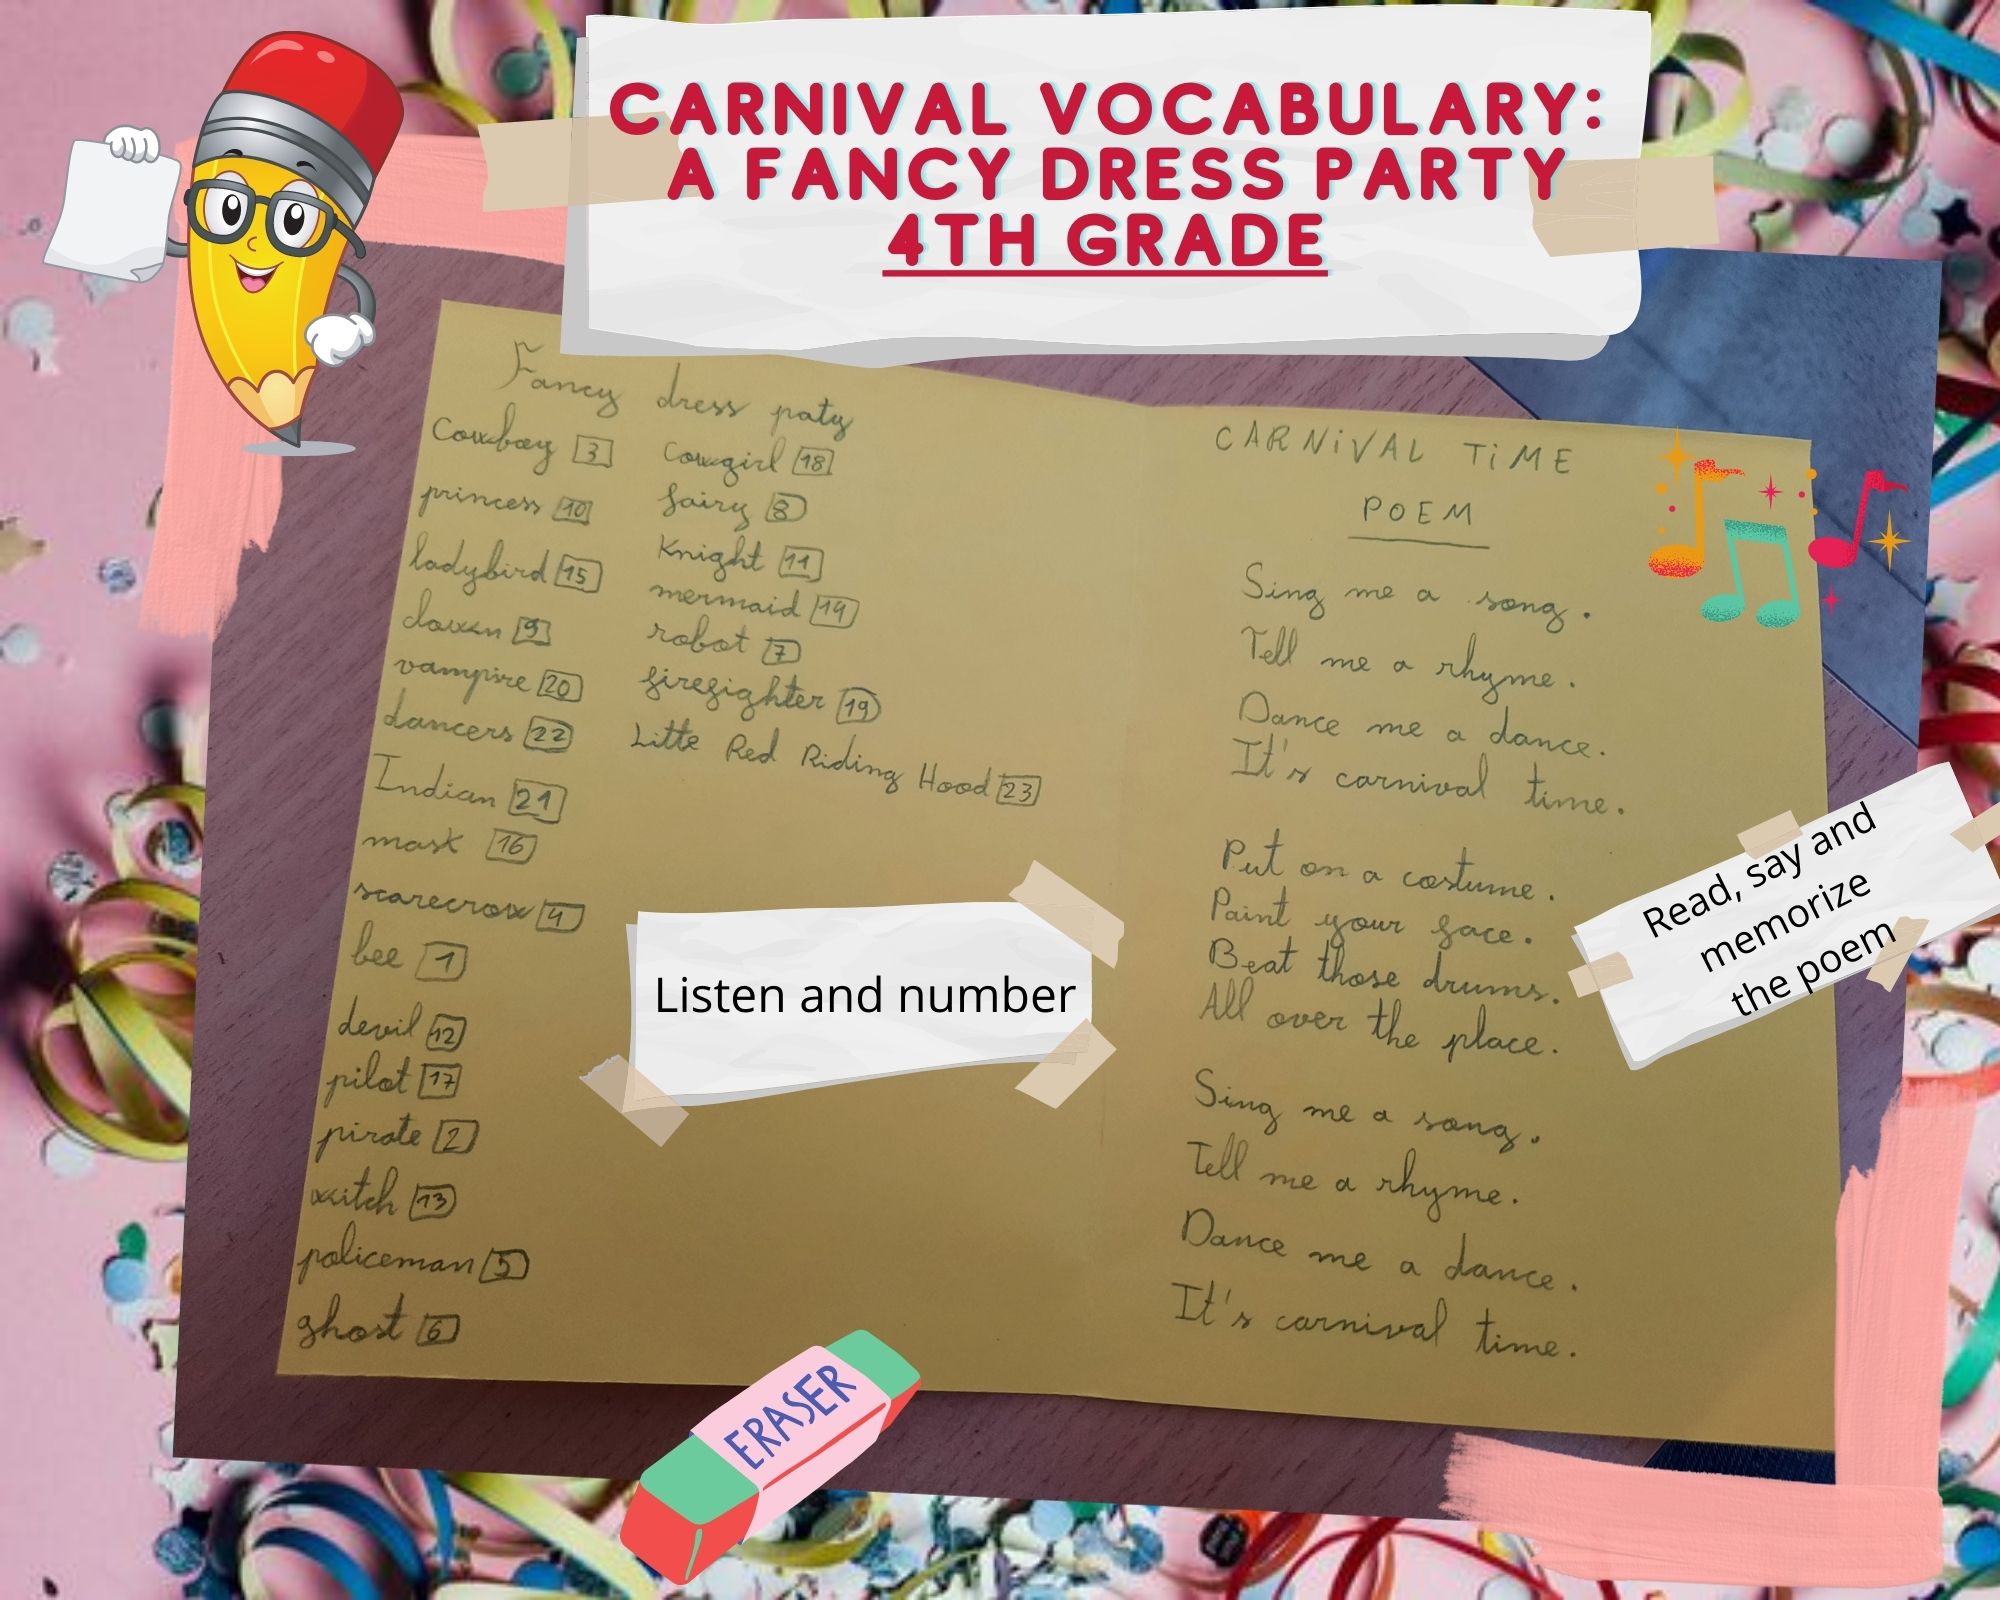 CARNIVAL VOCABULARY:
A FANCY DRESS PARTY
4TH GRADE
Fancy dress paty
Cowboy 3
princess 10
ladybird 15
clown 9
vampire 20
dancers 22
Indian 21
mask 16
scarecrow 4
bee 1
devil 12
pilot 17
pirate 2
witch 13
policeman 5
ghost 6
Cowgirl 18
fairy 8
Knight 11
mermaid 14
robot 7
firefighter 19
Litte Red Riding Hood 23
Listen and number
CARNiVAL TiME
POEM
Sing me a song.
Tell me a rhyme.
Dance me a dance.
It's carnival time.
Put on a costume.
Paint your face.
Beat those drums.
All over the place.
Sing me a song.
Tell me a rhyme.
Dance me a dance.
It's carnival time.
Read, say and
memorize
the poem
ERASER